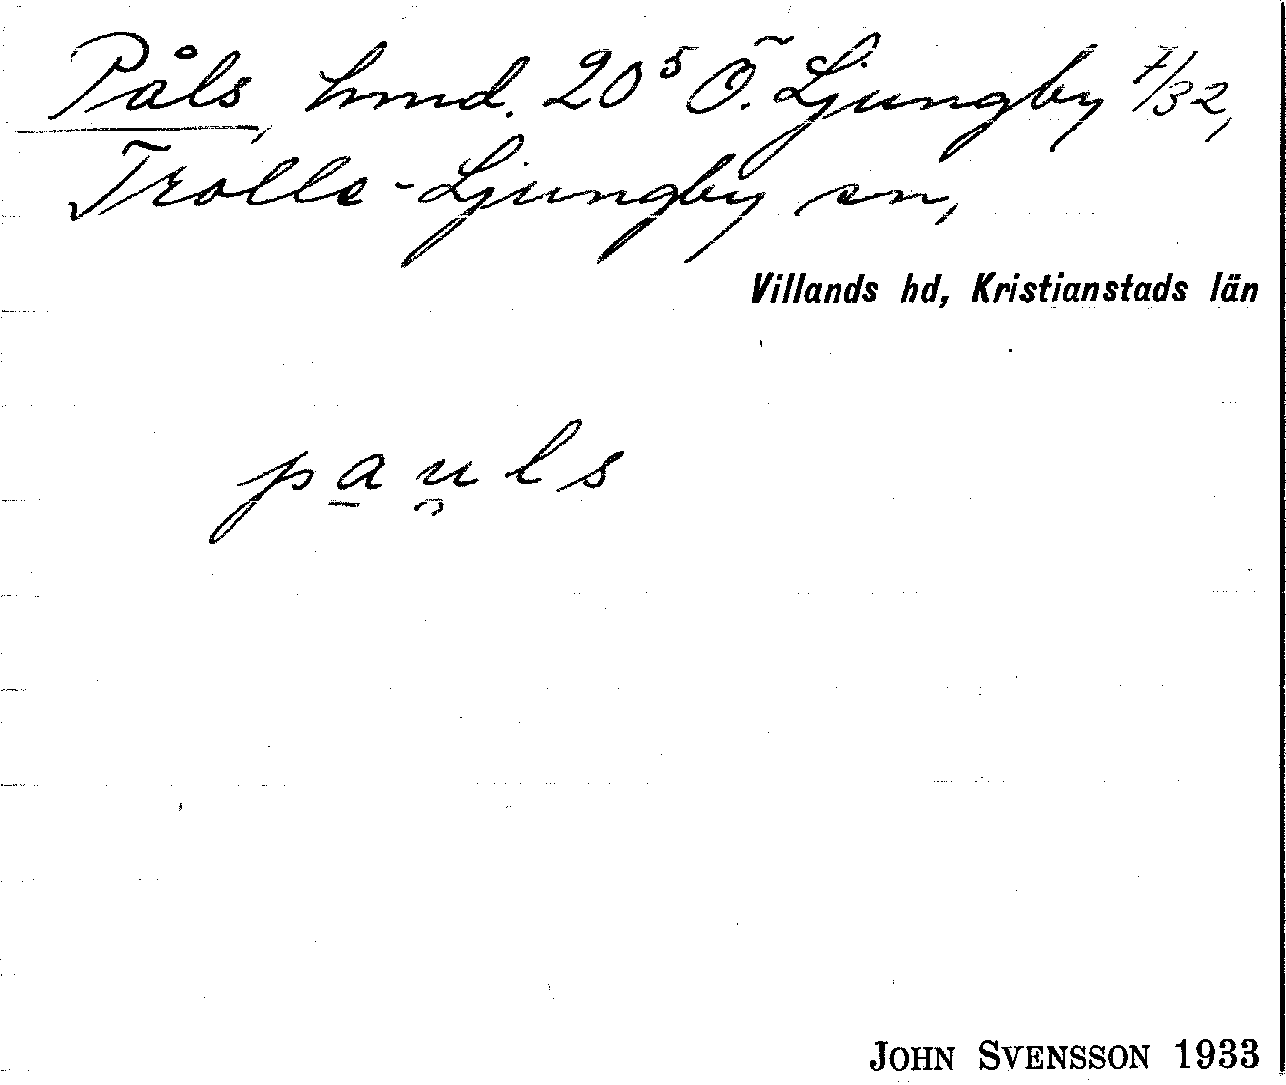 Påls, hmd. 20⁵ Ö. Ljungby 7/32,
Trolle-Ljungby sn,
Villands hd, Kristianstads län
pa̠u̯ls
JOHN SVENSSON 1933